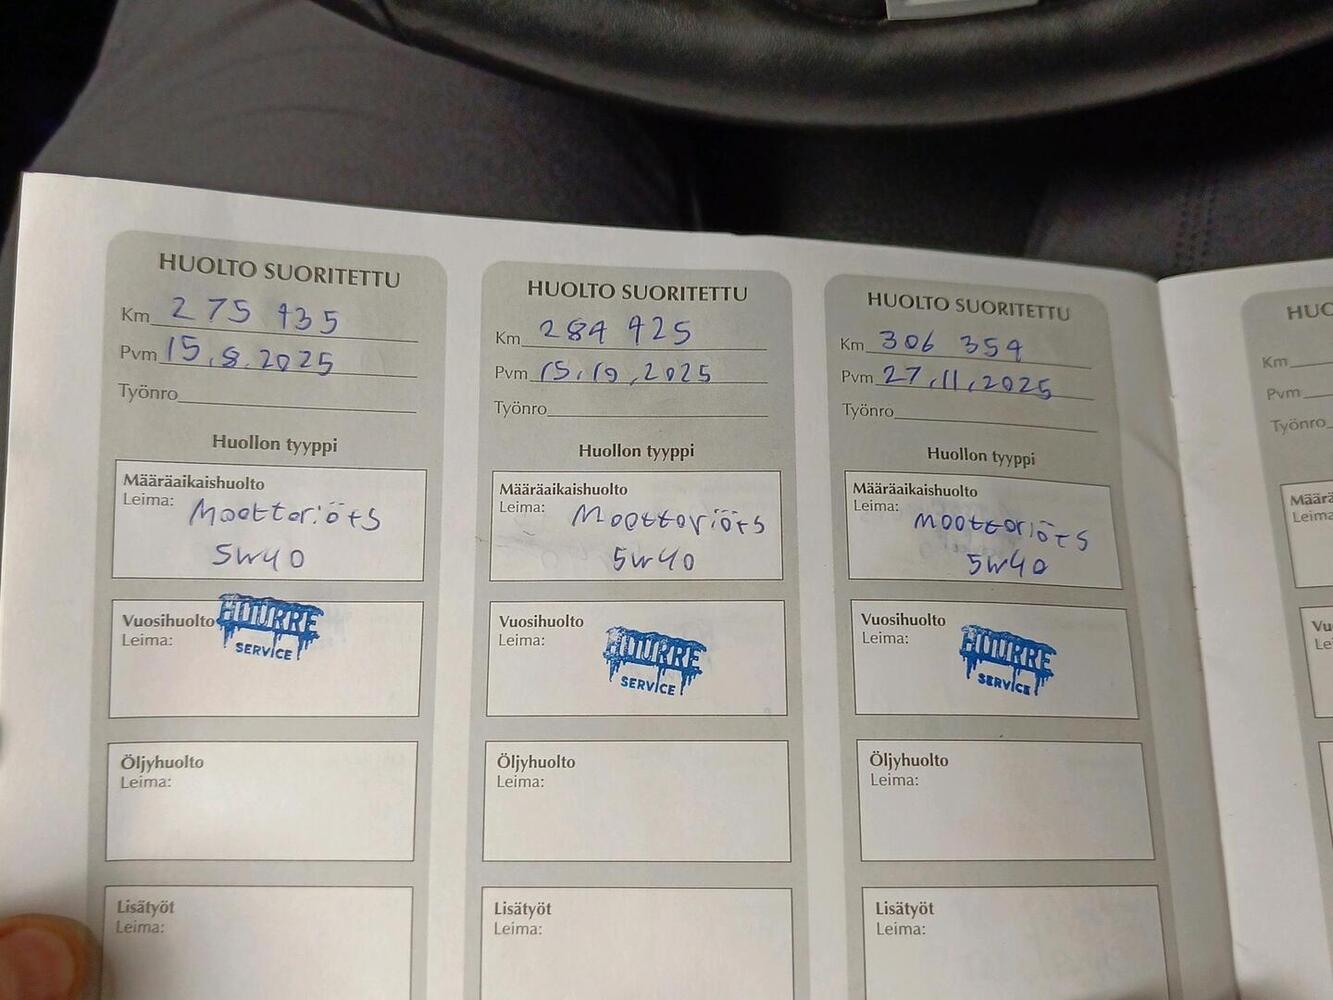 HUOLTO SUORITETTU
Km 275 435
Pvm 15.8.2025
Työnro
Huollon tyyppi
Määräaikaishuolto
Leima: Moottoriöts
5w40
Vuosihuolto
Leima:
HUURRE
SERVICE
Öljyhuolto
Leima:
Lisätyöt
Leima:
HUOLTO SUORITETTU
Km 284 425
Pvm 15.10.2025
Työnro
Huollon tyyppi
Määräaikaishuolto
Leima: Moottoriöts
5w40
Vuosihuolto
Leima:
HUURRE
SERVICE
Öljyhuolto
Leima:
Lisätyöt
Leima:
HUOLTO SUORITETTU
Km 306 354
Pvm 27.11.2025
Työnro
Huollon tyyppi
Määräaikaishuolto
Leima: Moottoriöts
5w40
Vuosihuolto
Leima:
HUURRE
SERVICE
Öljyhuolto
Leima:
Lisätyöt
Leima:
Km
Pvm
Työnro